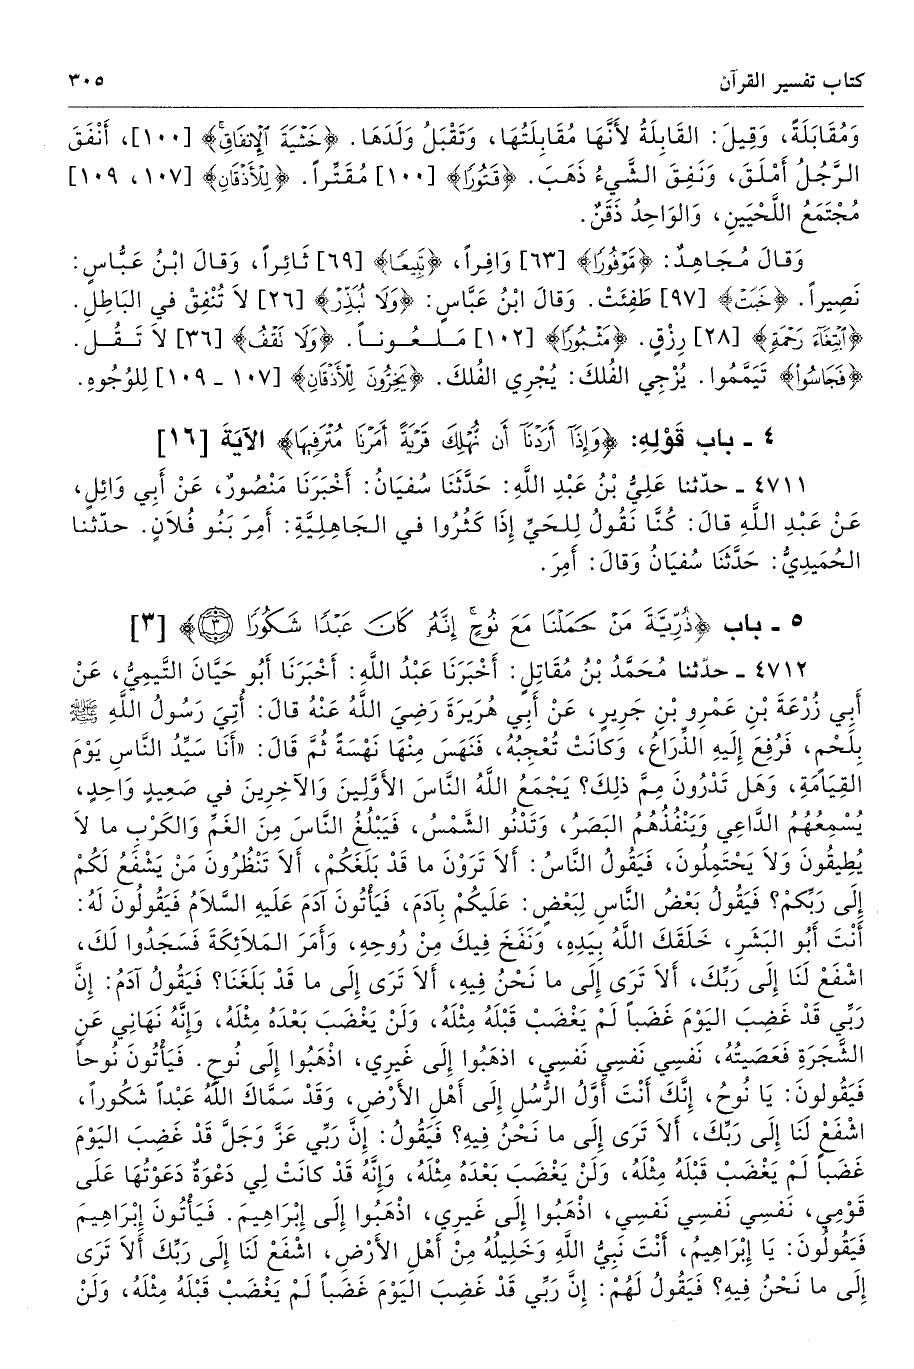 كتاب تفسير القرآن ٣٠٥
وَمُقَابَلَةً، وَقِيلَ: القَابِلَةُ لأَنَّهَا مُقَابِلَتُهَا، وَتَقْبَلُ وَلَدَهَا. ﴿خَشْيَةَ الْإِنفَاقِ﴾ [١٠٠]، أَنْفَقَ
الرَّجُلُ أَمْلَقَ، وَنَفِقَ الشَّيْءُ ذَهَبَ. ﴿قَتُورًا﴾ [١٠٠] مُقَتِّراً. ﴿لِلْأَذْقَانِ﴾ [١٠٧، ١٠٩]
مُجْتَمَعُ اللَّحْيَينِ، وَالوَاحِدُ ذَقَنٌ.
وَقالَ مُجَاهِدٌ: ﴿مَوْفُورًا﴾ [٦٣] وَافِراً، ﴿تَبِيعًا﴾ [٦٩] ثَائِراً، وَقالَ ابْنُ عَبَّاسٍ:
نَصِيراً. ﴿خَبَتْ﴾ [٩٧] طَفِئَتْ. وَقالَ ابْنُ عَبَّاسٍ: ﴿وَلَا نُبَذِّرْ﴾ [٢٦] لاَ تُنْفِقْ في البَاطِلِ.
﴿ابْتِغَاءَ رَحْمَةٍ﴾ [٢٨] رِزْقٍ. ﴿مَثْبُورًا﴾ [١٠٢] مَلعُوناً. ﴿وَلَا نَقْفُ﴾ [٣٦] لاَ تَقُل.
﴿فَجَاسُوا﴾ تَيَمَّمُوا. يُزْجِي الفُلكَ: يُجْرِي الفُلكَ. ﴿يَخِرُّونَ لِلْأَذْقَانِ﴾ [١٠٧ ـ ١٠٩] لِلوُجُوهِ.
٤ ـ باب قَوْلِهِ: ﴿وَإِذَا أَرَدْنَا أَن نُّهْلِكَ قَرْيَةً أَمَرْنَا مُتْرَفِيهَا﴾ الآيَةَ [١٦]
٤٧١١ ـ حدّثنا عَلِيُّ بْنُ عَبْدِ اللَّهِ: حَدَّثَنَا سُفيَانُ: أَخْبَرَنَا مَنْصُورٌ، عَنْ أَبِي وَائِلٍ،
عَنْ عَبْدِ اللَّهِ قالَ: كُنَّا نَقُولُ لِلحَيِّ إِذَا كَثُرُوا في الجَاهِلِيَّةِ: أَمِرَ بَنُو فُلاَنٍ. حدّثنا
الحُمَيدِيُّ: حَدَّثَنَا سُفيَانُ وَقالَ: أَمِرَ.
٥ ـ باب ﴿ذُرِّيَّةَ مَنْ حَمَلْنَا مَعَ نُوحٍ إِنَّهُ كَانَ عَبْدًا شَكُورًا ٣﴾ [٣]
٤٧١٢ ـ حدّثنا مُحَمَّدُ بْنُ مُقَاتِلٍ: أَخْبَرَنَا عَبْدُ اللَّهِ: أَخْبَرَنَا أَبُو حَيَّانَ التَّيمِيُّ، عَنْ
أَبِي زُرْعَةَ بْنِ عَمْرِو بْنِ جَرِيرٍ، عَنْ أَبِي هُرَيرَةَ رَضِيَ اللَّهُ عَنْهُ قالَ: أُتِيَ رَسُولُ اللَّهِ ﷺ
بِلَحْمٍ، فَرُفِعَ إِلَيهِ الذِّرَاعُ، وَكانَتْ تُعْجِبُهُ، فَنَهَسَ مِنْهَا نَهْسَةً ثُمَّ قَالَ: «أَنَا سَيِّدُ النَّاسِ يَوْمَ
القِيَامَةِ، وَهَل تَدْرُونَ مِمَّ ذلِكَ؟ يَجْمَعُ اللَّهُ النَّاسَ الأَوَّلِينَ وَالآخِرِينَ في صَعِيدٍ وَاحِدٍ،
يُسْمِعُهُمُ الدَّاعِي وَيَنْفُذُهُمُ البَصَرُ، وَتَدْنُو الشَّمْسُ، فَيَبْلُغُ النَّاسَ مِنَ الغَمِّ وَالكَرْبِ ما لاَ
يُطِيقُونَ وَلاَ يَحْتَمِلُونَ، فَيَقُولُ النَّاسُ: أَلاَ تَرَوْنَ ما قَدْ بَلَغَكُمْ، أَلاَ تَنْظُرُونَ مَنْ يَشْفَعُ لَكُمْ
إِلَى رَبِّكُمْ؟ فَيَقُولُ بَعْضُ النَّاسِ لِبَعْضٍ: عَلَيكُمْ بِآدَمَ، فَيَأْتُونَ آدَمَ عَلَيهِ السَّلاَمُ فَيَقُولُونَ لَهُ:
أَنْتَ أَبُو البَشَرِ، خَلَقَكَ اللَّهُ بِيَدِهِ، وَنَفَخَ فِيكَ مِنْ رُوحِهِ، وَأَمَرَ المَلاَئِكَةَ فَسَجَدُوا لَكَ،
اشْفَعْ لَنَا إِلَى رَبِّكَ، أَلاَ تَرَى إِلَى ما نَحْنُ فِيهِ، أَلاَ تَرَى إِلَى ما قَدْ بَلَغَنَا؟ فَيَقُولُ آدَمُ: إِنَّ
رَبِّي قَدْ غَضِبَ اليَوْمَ غَضَباً لَمْ يَغْضَبْ قَبْلَهُ مِثْلَهُ، وَلَنْ يَغْضَبَ بَعْدَهُ مِثْلَهُ، وَإِنَّهُ نَهَانِي عَنِ
الشَّجَرَةِ فَعَصَيتُهُ، نَفسِي نَفسِي نَفسِي، اذهَبُوا إِلَى غَيرِي، اذْهَبُوا إِلَى نُوحٍ. فَيَأْتُونَ نُوحاً
فَيَقُولونَ: يَا نُوحُ، إِنَّكَ أَنْتَ أَوَّلُ الرُّسُلِ إِلَى أَهْلِ الأَرْضِ، وَقَدْ سَمَّاكَ اللَّهُ عَبْداً شَكُوراً،
اشْفَعْ لَنَا إِلَى رَبِّكَ، أَلاَ تَرَى إِلَى ما نَحْنُ فِيهِ؟ فَيَقُولُ: إِنَّ رَبِّي عَزَّ وَجَلَّ قَدْ غَضِبَ اليَوْمَ
غَضَباً لَمْ يَغْضَبْ قَبْلَهُ مِثْلَهُ، وَلَنْ يَغْضَبَ بَعْدَهُ مِثْلَهُ، وَإِنَّهُ قَدْ كانَتْ لِي دَعْوَةٌ دَعَوْتُهَا عَلَى
قَوْمِي، نَفسِي نَفسِي نَفسِي، اذْهَبُوا إِلَى غَيرِي، اذْهَبُوا إِلَى إِبْرَاهِيمَ. فَيَأْتُونَ إِبْرَاهِيمَ
فَيَقُولُونَ: يَا إِبْرَاهِيمُ، أَنْتَ نَبِيُّ اللَّهِ وَخَلِيلُهُ مِنْ أَهْلِ الأَرْضِ، اشْفَعْ لَنَا إِلَى رَبِّكَ أَلاَ تَرَى
إِلَى ما نَحْنُ فِيهِ؟ فَيَقُولُ لَهُمْ: إِنَّ رَبِّي قَدْ غَضِبَ اليَوْمَ غَضَباً لَمْ يَغْضَبْ قَبْلَهُ مِثْلَهُ، وَلَنْ